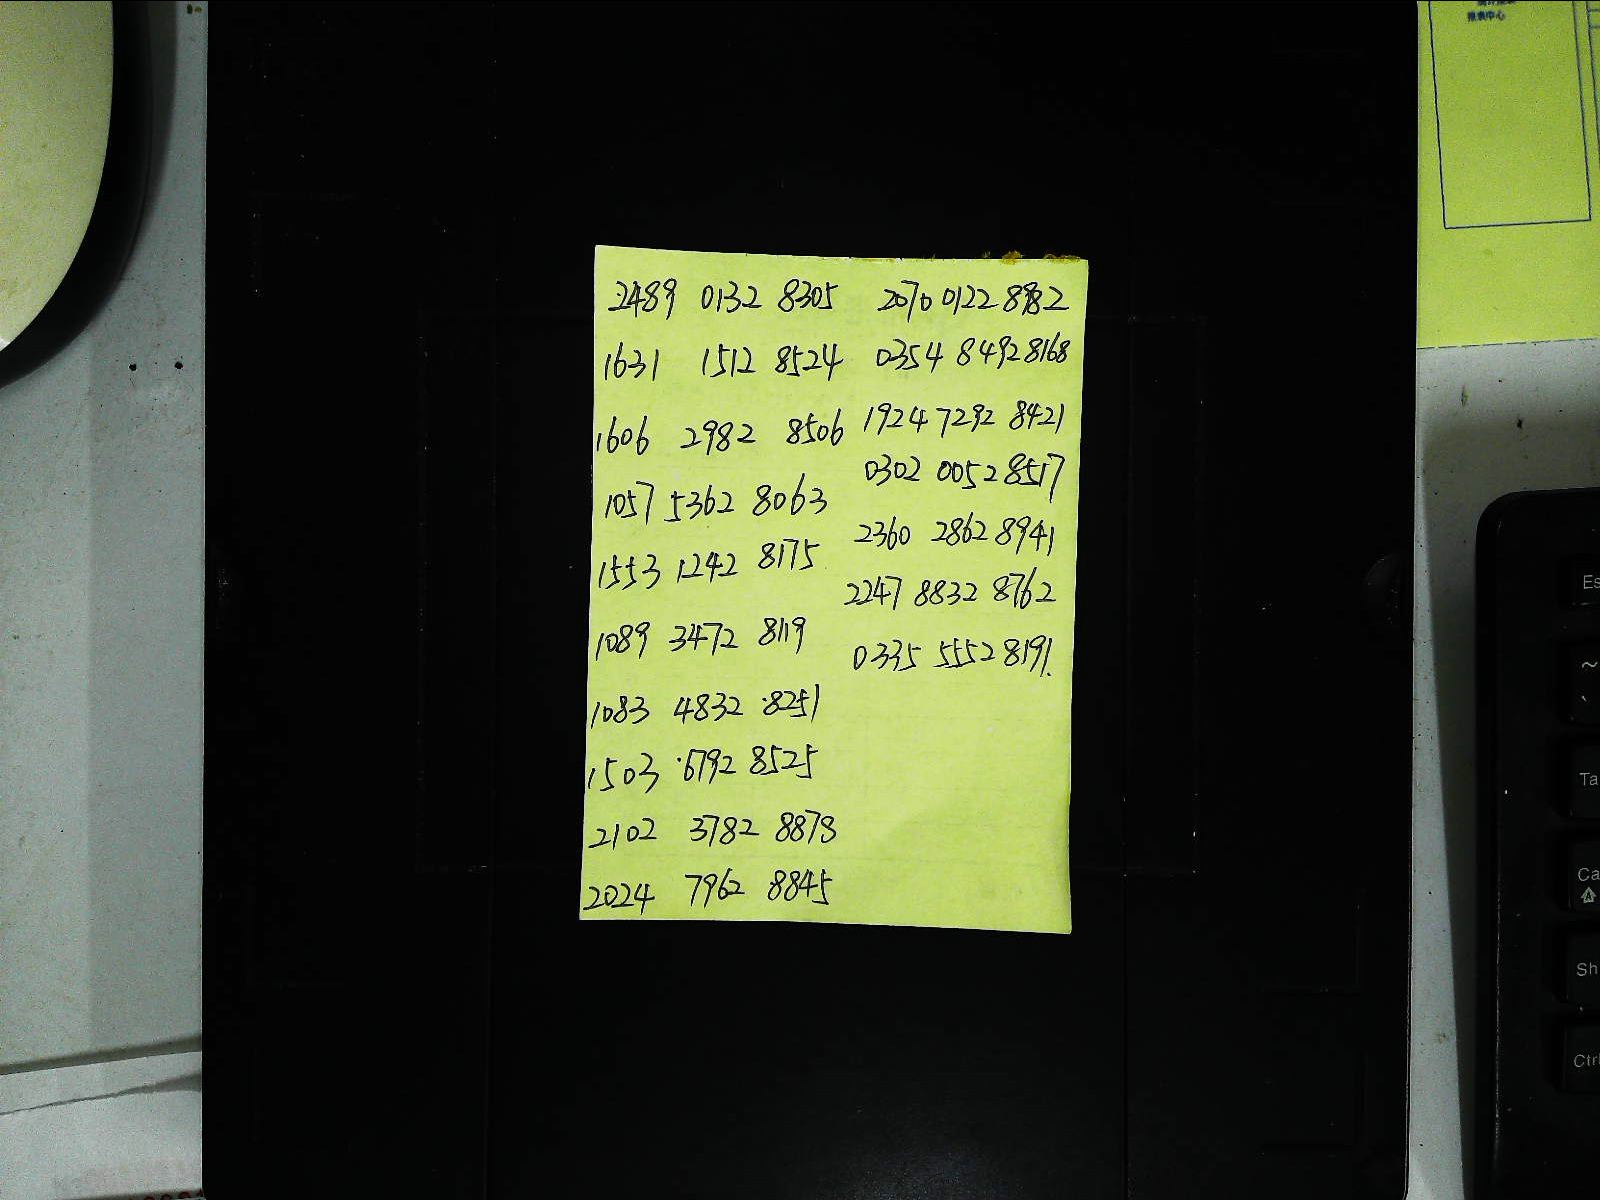 报表中心
2489 0132 8305
1631 1512 8524
1606 2982 8506
1057 5362 8063
1553 1242 8175
1089 3472 8119
1083 4832 8251
1503 6792 8525
2102 3782 8878
2024 7962 8845
2070 0122 8982
0354 8492 8168
1924 7292 8421
0302 0052 8517
2360 2862 8941
2247 8832 8762
0335 5552 8191.
Es
~
`
Ta
Ca
Sh
Ctrl